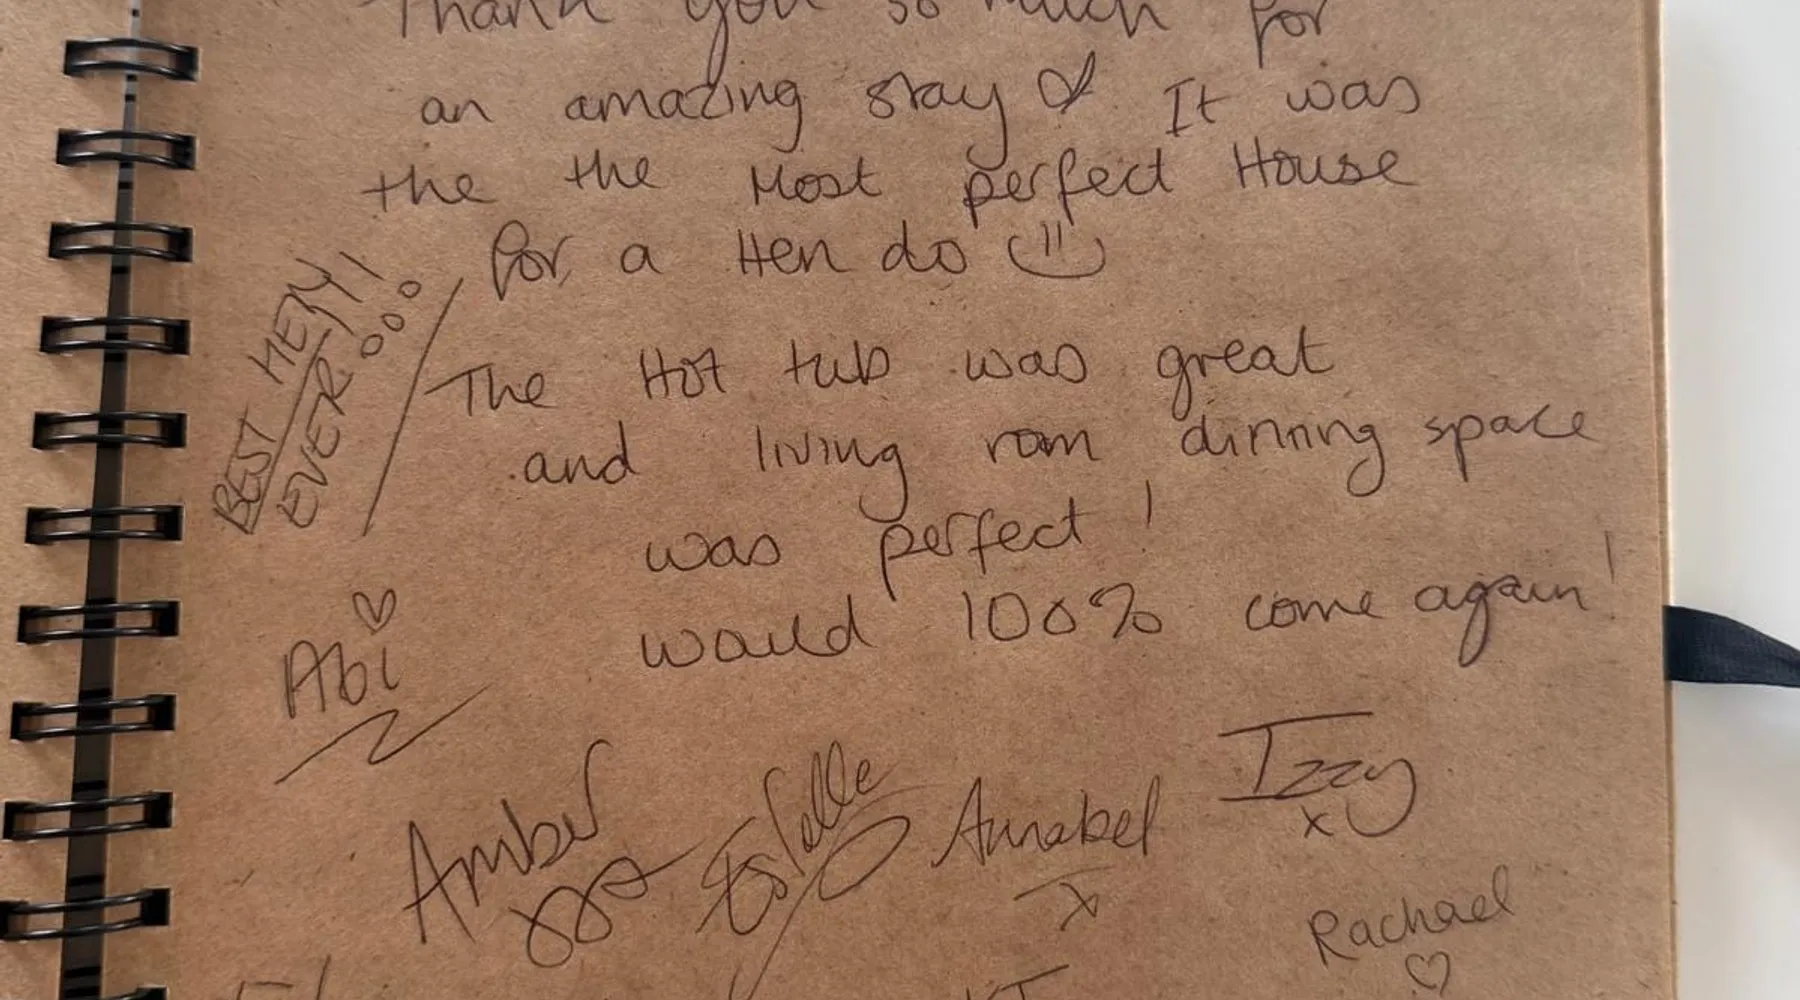 Thank you so much for
an amazing stay ♡ It was
the the Most perfect House
for a Hen do
The Hot tub was great
and living room dinning space
was perfect!
would 100% come again!
BEST HEN!
EVER
Abi ♡
Amber
Estelle
Annabel
x
Izzy
x
Rachael
♡